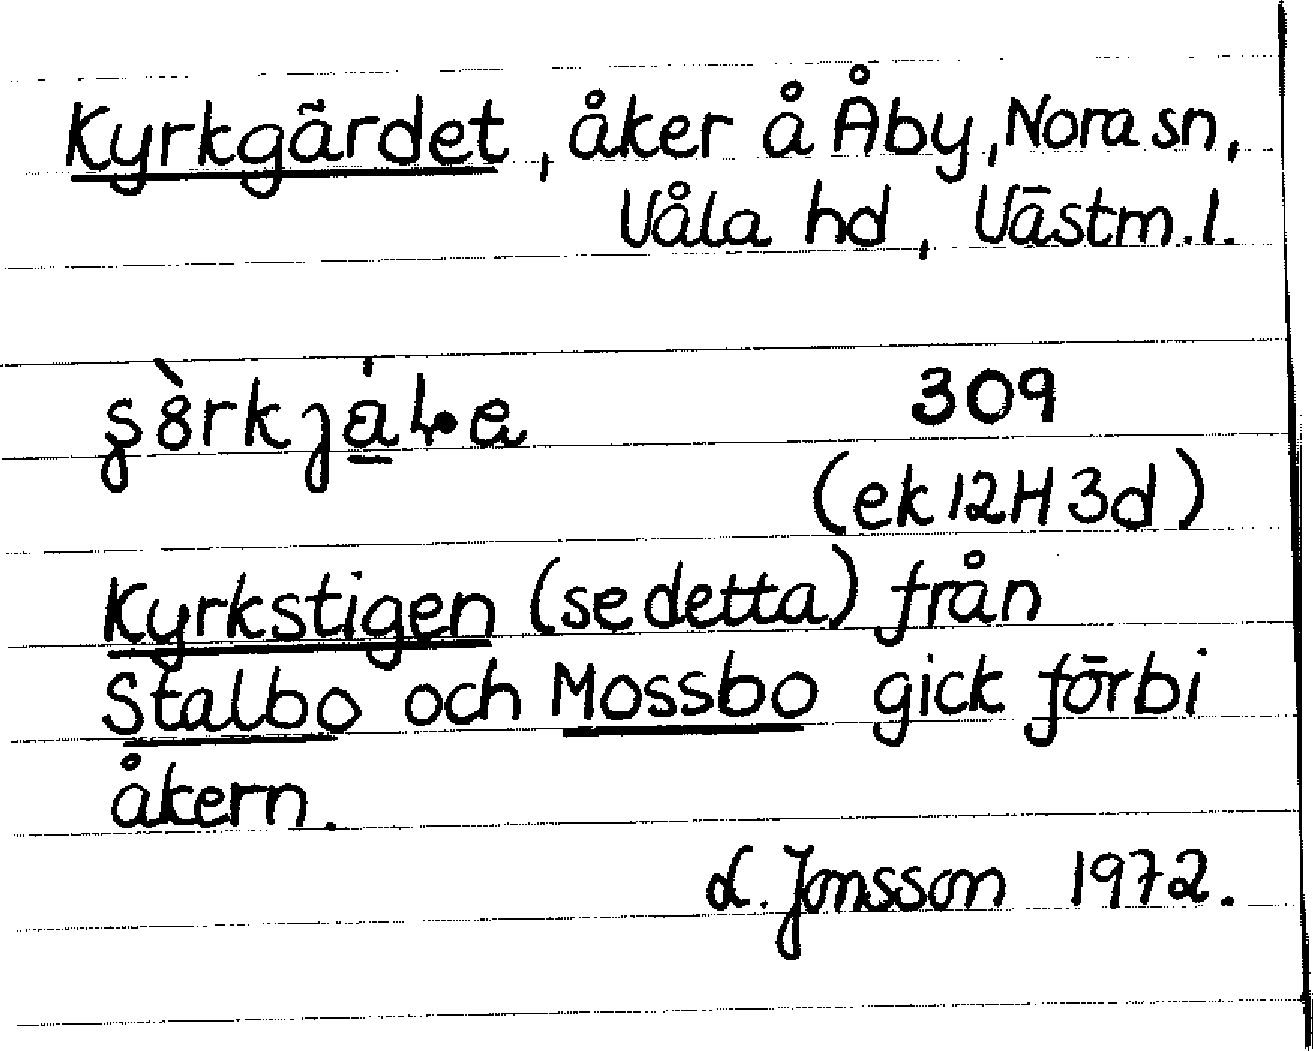 Kyrkgärdet, åker å Åby, Nora sn,
Våla hd, Västm. l.
309
(ek 12H 3d)
Kyrkstigen (se detta) från
Stalbo och Mossbo gick förbi
åkern.
L. Jonsson 1972.